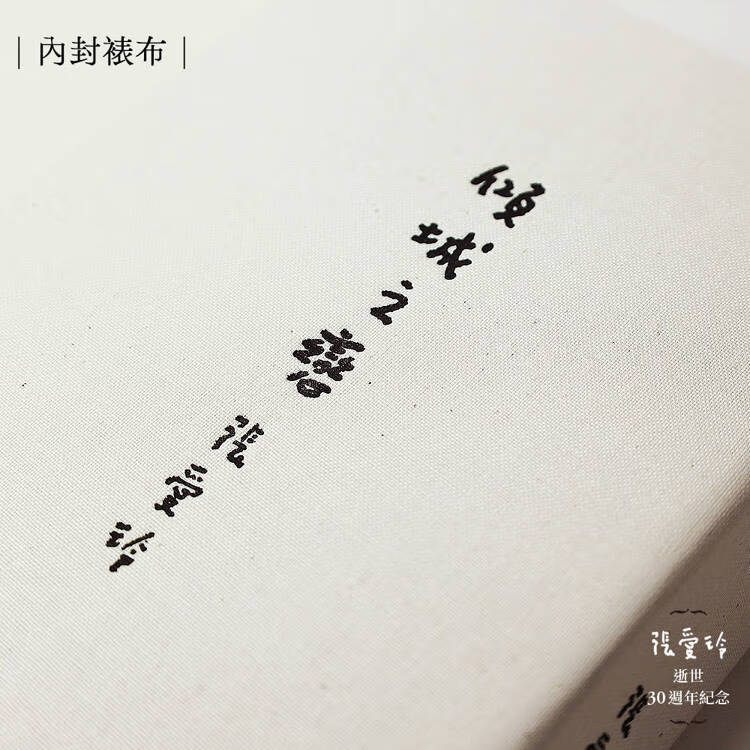 ｜內封裱布｜
傾城之戀
張愛玲
張愛玲
逝世
30週年紀念
張